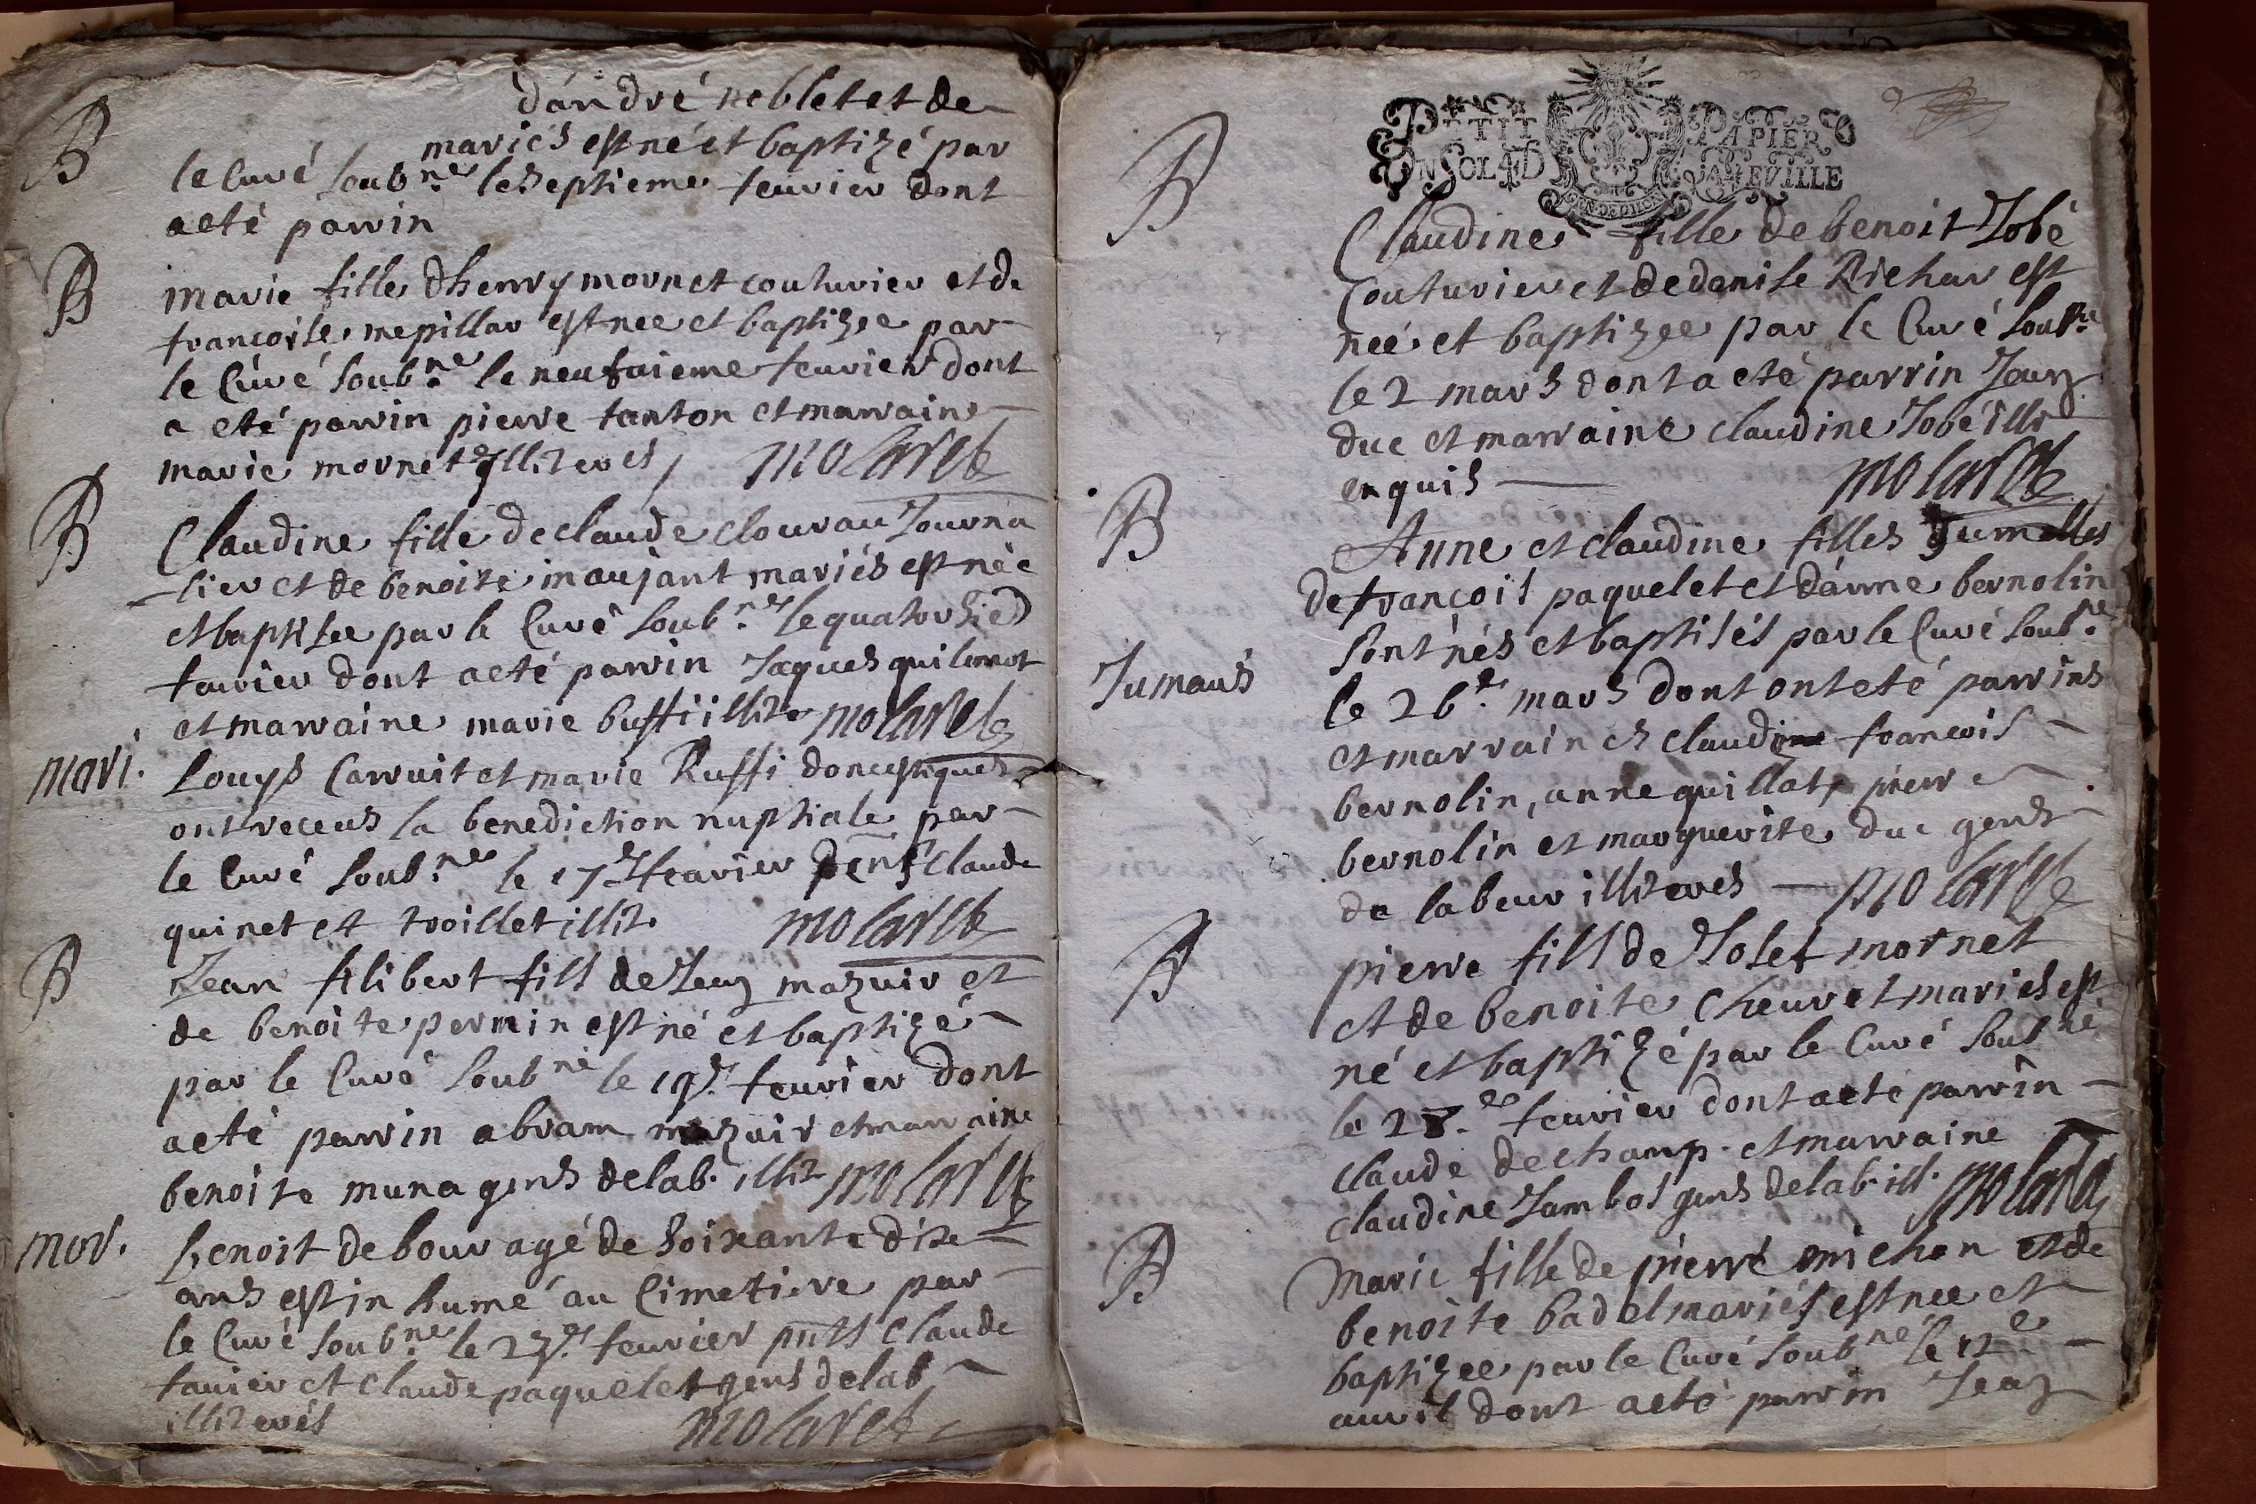 B
dándré noblet et de
mariés est né et baptizé par
le Curé soub.né le septieme feurier dont
a eté parrin
B
marie fille dhenry mornet couturier et de
francoise mepillar est nee et baptizee par
le Curé soub.né le neufuieme feurier dont
a eté parrin pierre tanton et marraine
marie mornet illiteres / molaret
B
Claudine fille de claude clourau Journa
lier et de benoite maujant mariés est née
et baptisee par le Curé soub.né le quatorsie
feurier dont a eté parrin Jaques quilimot
et marraine marie buffi illit. molaret
mari.
Louys Carruit et marie Ruffi domestiques
ont receus la benediction nuptiale par
le Curé soub.né le 17e feurier Claude
quinet et troillet illit. molaret
B
Jean filibert fils de Jean mazuir et
de benoite perrin est né et baptizé
par le Curé soub.né le 19e feurier dont
a eté parrin abram mazuir et marraine
benoite muna gens de lab. illit molaret
mor.
benoit debour agé de soixante dise
ans est in humé au Cimetiere par
le Curé soub.né le 27e feurier pnts Claude
tauier et claude paquelet gens de lab
illiterés molaret
PETIT PAPIER
UN SOL 4D LA FEVILLE
GEN. DE DIJON
B
Claudine fille de benoit Jobé
Couturier et de denise Richar est
née et baptizee par le Curé soub.né
le 2 mars dont a eté parrin Jean
duc et marraine claudine Jobé illi
enquis molaret
B
Anne et claudine filles Jumelles
de françois paquelet et dánne bernolin
sont nés et baptisés par le Curé soub.né
Jumaus
le 26e mars dont ont eté parrins
et marraines claudine francois
bernolin, anne quillat, pierre
bernolin et marguerite duc gens
de labeur illiteres molaret
B
pierre fils de Josef mornet
et de benoite cheuret mariés est
né et baptizé par le Curé soubné
le 28.e feurier dont a eté parrin
claude dechamp. et marraine
claudine Jambos gens de lab. ill. molaret
B
Marie fille de pierre michon et de
benoite badel mariés est nee et
baptizee par le Curé soubné le 12e
auril dont a eté parrin Jean